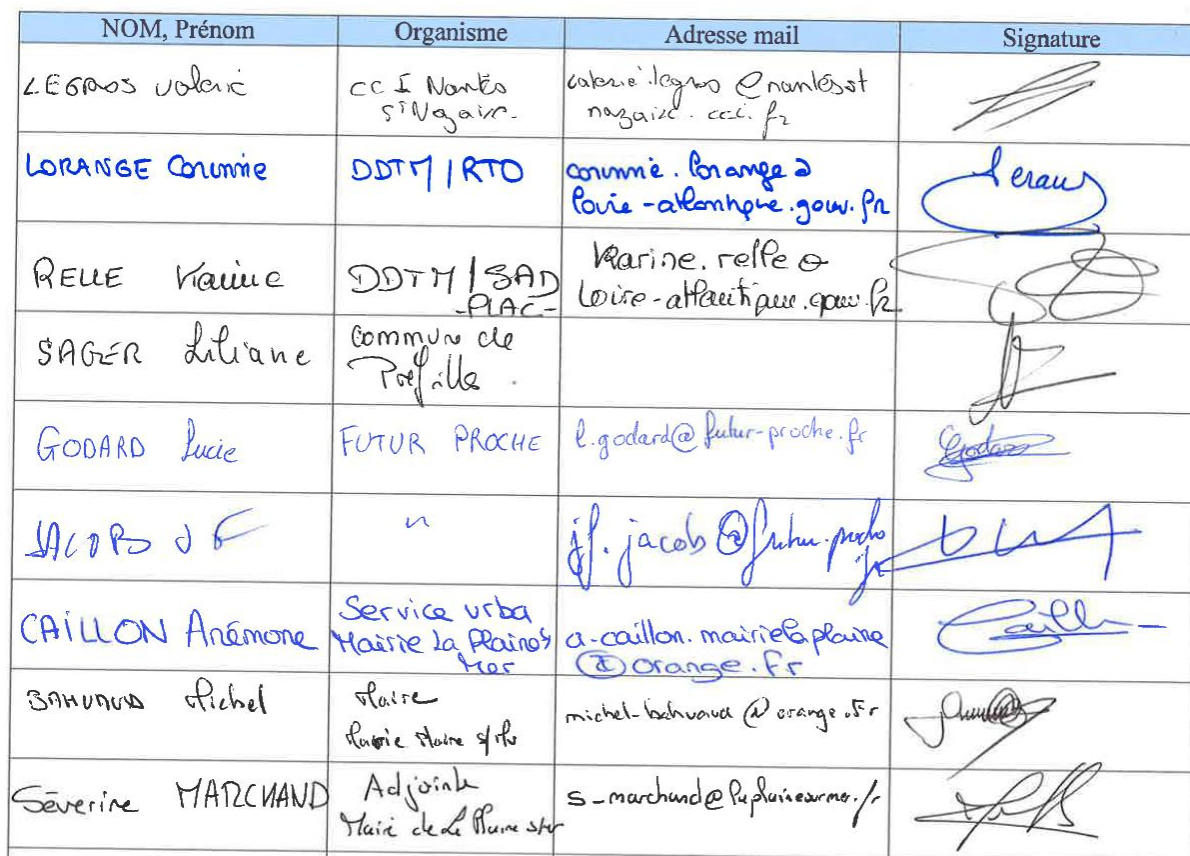 NOM, Prénom Organisme Adresse mail Signature
LEGROS Valérie CCI Nantes valerie.legros @nantesst
St Nazaire. nazaire.cci.fr
LORANGE Corinne DDTM/RTO corinne.lorange@
loire-atlantique.gouv.fr
RELLE Karine DDTM/SAD Karine.relle@
-PLAC- loire-atlantique.gouv.fr
SAGER Liliane Commune de
Préfailles.
GODARD Lucie FUTUR PROCHE l.godard@futur-proche.fr Godard
JACOB J F " jf.jacob@futur-proche
.fr
CAILLON Anémone Service urba
Mairie La Plaine s/ a-caillon.mairielaplaine
Mer @orange.fr
BAHUAUD Michel Maire michel-bahuaud @orange.fr
Mairie Plaine s/Mer
Séverine MARCHAND Adjointe s-marchand@laplainesurmer.fr
Mairie de La Plaine s/mer